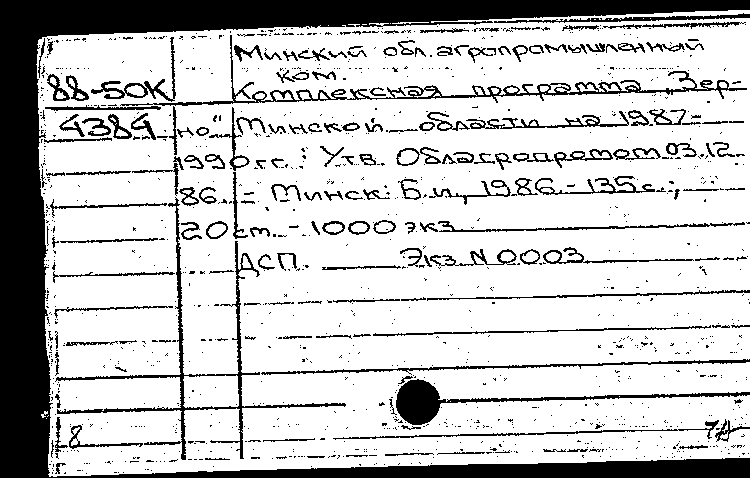 Минский обл. агропромышленный
ком.
88-50К Комплексная программа „Зер-
4384 но" Минской области на 1987-
1990 гг.: Утв. Облагропромом 03.12.
86. - Минск: Б.и., 1986. - 135 с.;
20 ст. - 1000 экз.
ДСП. Экз. N 0003
8